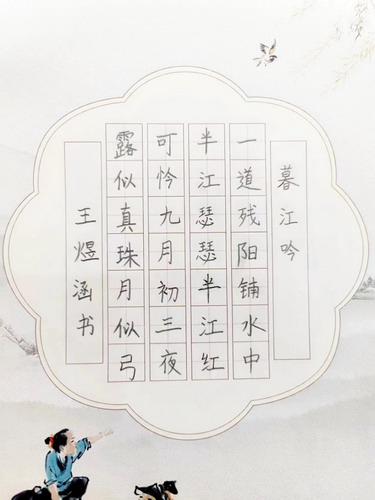 暮江吟
一道残阳铺水中
半江瑟瑟半江红
可怜九月初三夜
露似真珠月似弓
王煜涵书